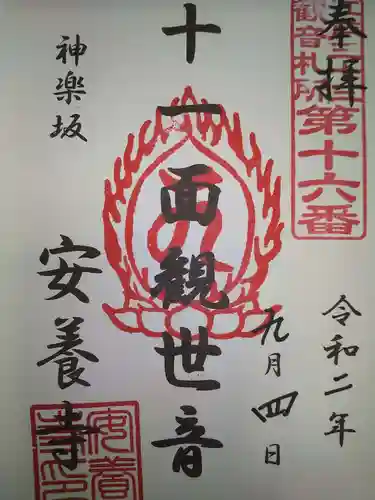 奉拝
観音札所
第十六番
令和二年
九月四日
十一面観世音
神楽坂
安養寺